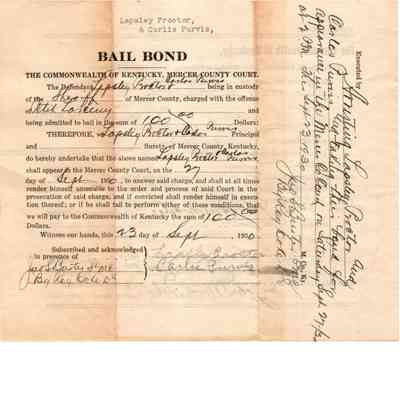 Lapsley Proctor,
& Carlis Purvis,
BAIL BOND
THE COMMONWEALTH OF KENTUCKY, MERCER COUNTY COURT.
The Defendant, Lapsley Proctor & Carlos Purvis being in custody
of the Sheriff of Mercer County, charged with the offense
Petit Larceny
being admitted to bail in the sum of 100 00 Dollars:
THEREFORE, Lapsley Proctor & Carlos Purvis Principal
and Surety of Mercer County, Kentucky,
do hereby undertake that the above named Lapsley Proctor & Carlos Purvis
shall appear the Mercer County Court, on the 27
day of Sept 1930, to answer said charge, and shall at all times
render himself amenable to the order and process of said Court in the
prosecution of said charge, and if convicted shall render himself in execu-
tion thereof; or if he shall fail to perform either of these conditions, that
we will pay to the Commonwealth of Kentucky the sum of $100 00
Dollars.
Witness our hands, this 23 day of Sept 1930
Subscribed and acknowledged
in presence of
Lapsley Proctor
Carlis Purvis
By Roy Cole DS
Executed by Arresting Lapsley Proctor and
Carlos Purvis, and taking their bond for
appearance in the Mercer Co Court on Saturday Sept 27
This Sept 23 1930
M. Co. Ky.
By Roy Cole